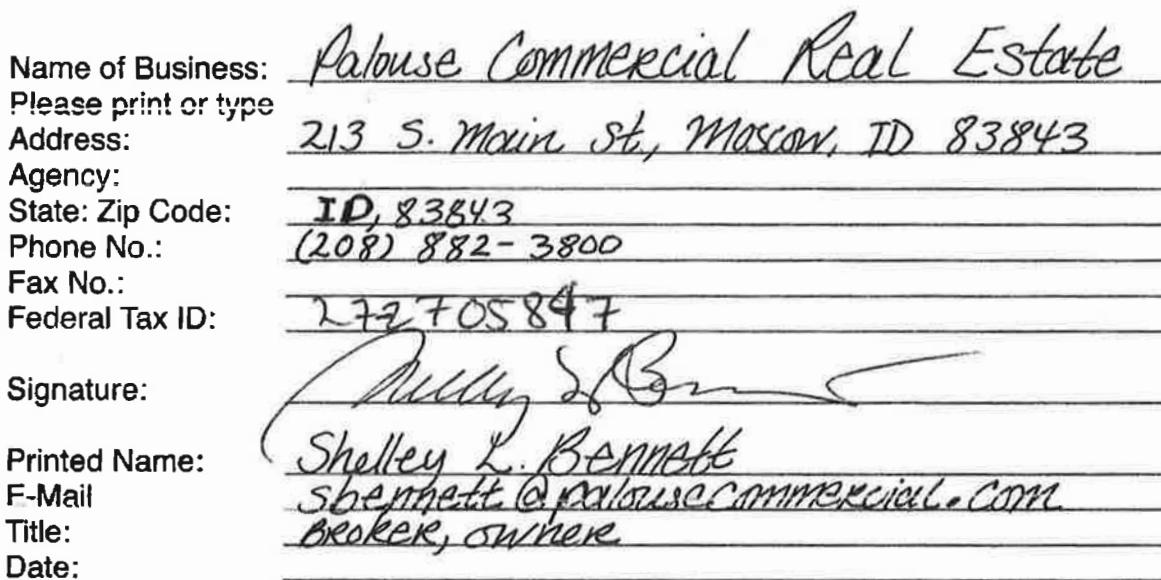 Name of Business: Palouse Commercial Real Estate
Please print or type
Address: 213 S. Main St., Moscow, ID 83843
Agency:
State: Zip Code: ID, 83843
Phone No.: (208) 882-3800
Fax No.:
Federal Tax ID: 272705847
Signature: Shelley L Bennett
Printed Name: Shelley L. Bennett
E-Mail sbennett@palousecommercial.com
Title: Broker, owner
Date: